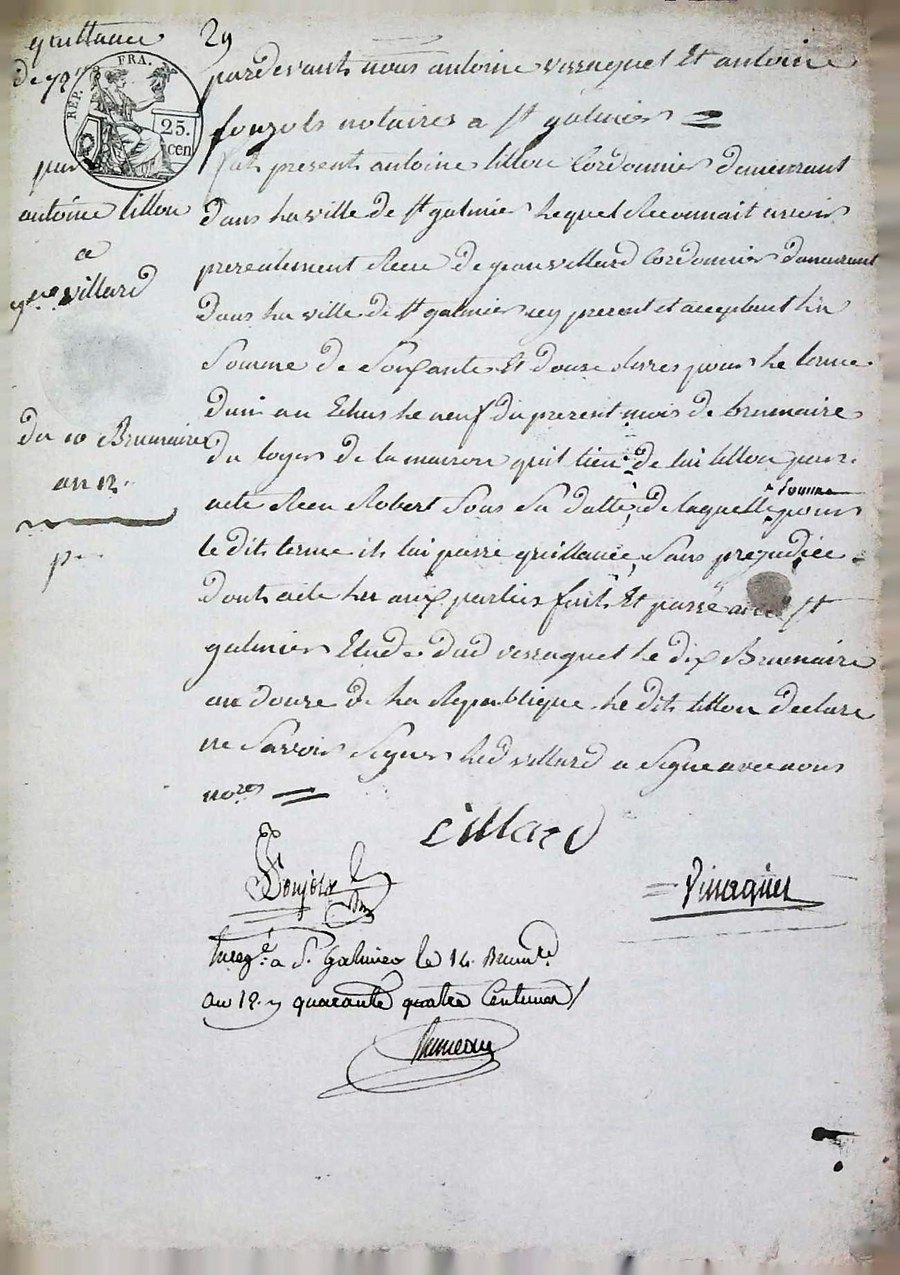 quittance
de 72
REP. FRA.
25.
cen
par
antoine tillon
a
villard
du 10 Brumaire
an 12.
29
pardevant nous antoine verraquet Et antoine
notaires a st galmier =
fut present antoine tillon Cordonnier demeurant
dans La ville de st galmier Lequel Reconnait avoir
presentement Receu de jean villard Cordonnier demeurant
dans La ville de st galmier icy present et acceptant La
Somme de Soixante Et douze Livres pour Le terme
d'un an Echus Le neuf du present mois de brumaire
du loyer de la maison quil tien de lui tillon par
acte Receu Robert Sous Sa datte, de laquelle somme pour
le dit terme il lui passe quittance, Sans prejudice
Dont acte Lu aux parties fait Et passé a St
galmier Etude dud verraquet Le dix Brumaire
an douze de La Republique Le dit tillon declare
ne Savoir Signer Led villard a Signé avec nous
nores =
villard
Verraquet
Enregé. a St. Galmier le 14. Brumre
an 12. quarante quatre Centimes /